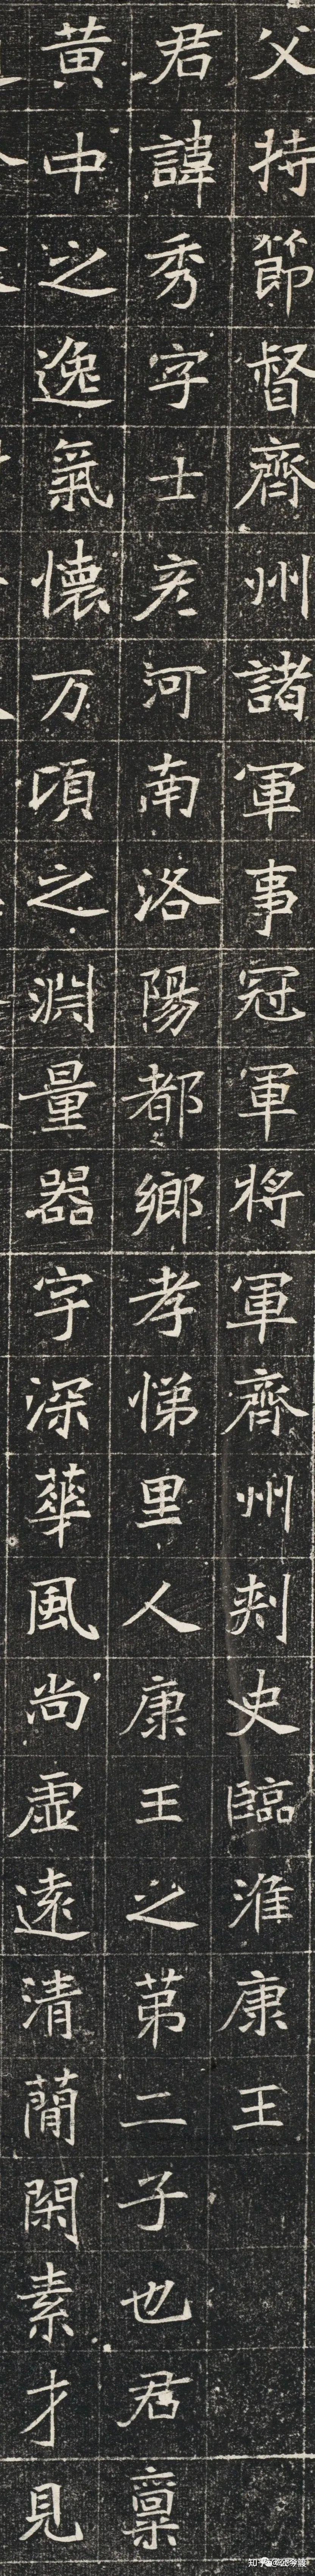 父持節督齊州諸軍事冠軍將軍齊州刺史臨淮康王
君諱秀字士彦河南洛陽都鄉孝悌里人康王之苐二子也君稟
黄中之逸氣懷万頃之淵量器宇深華風尚虛遠清蕳閑素才見